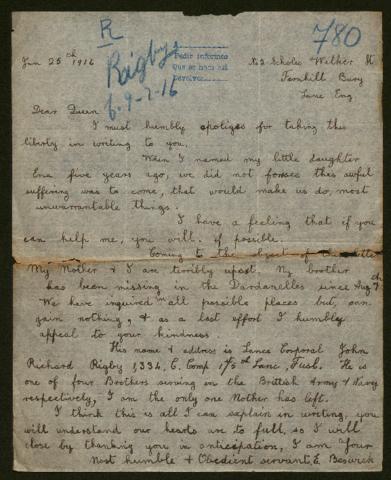 R
Rigby
6.9-2-16
Pedir informes
780
Jan 25th 1916
No 2 Scholes Walker St
Fernhill Bury
Lanc Eng.
Dear Queen
I must humbly apoligse for taking this
liberty in writing to you.
When I named my little daughter
Ena five years ago, we did not forsee this awful
suffering was to come, that would make us do, most
unwarrantable things.
I have a feeling that if you
can help me, you will. if possible.
Coming to the object of
My Mother & I are terribly upset. My brother
has been missing in the Dardanelles since Aug 7th
We have inquired in all possible places but, can
gain nothing, & as a last effort I humbly
appeal to your kindness.
His name & address is Lance Corporal John
Richard Rigby 1334. C. Comp 1/5th Lanc, Fusl. He is
one of four Brothers serving in the British Army & Navy
respectively, I am the only one Mother has left.
I think this is all I can explain in writing, you
will understand our hearts are to full, so I will
close by thanking you in anticipation, I am Your
Most humble & Obedient servant E. Beswick